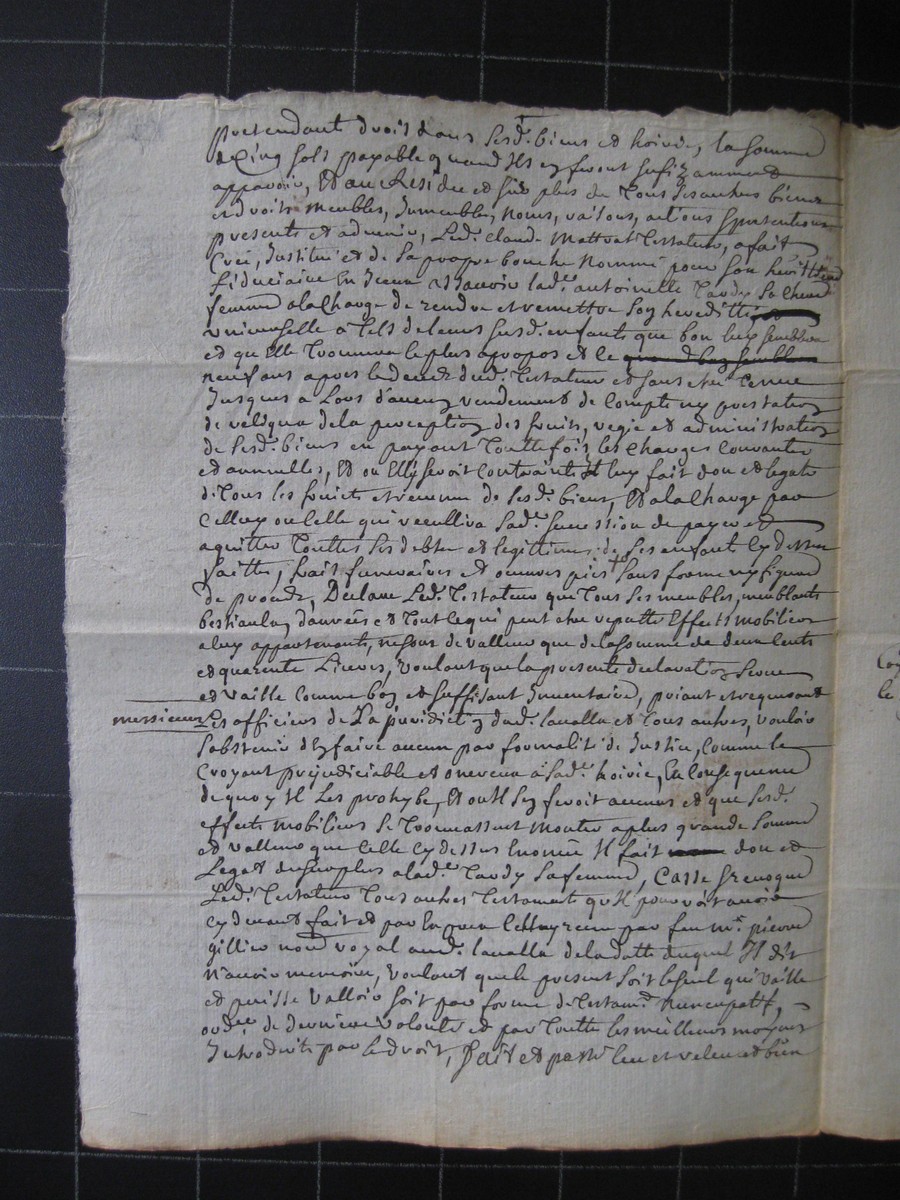 pretendants droit dans sesd. biens et hoirie, la somme
de Cinq sols payable quand Ils en feront sufizamment
apparoir, Et au Residu et sur plus de Tous ses autres biens
et droits meubles, Immeubles, Noms, raisons, actions pretentions
presents et advenir, Led. Claude Mattrat Testateur, a fait
Creé, Institué et de sa propre bouche Nommé pour son herittiere
fiduciaire Lad.e antoinette Tardy sa Chere
femme a la Charge de rendre et remettre son heredittée
universelle a Tels de leurs susd. enfants que bon luy semblera
et qu'elle Trouvera le plus a propos et ce
neuf ans apres le decedz dud. Testateur et sans etre Tenue
Jusques a Lors d'aucun rendement de Compte ny prestation
de reliqua de la perception des fruits, regie et administration
de sesd. biens en payant Touttefois les Charges Courantes
et annuelles, Et ou Elle seroit Contrainte Il luy fait don et legate
de Tous les fruits et revenus de sesd. biens, Et a la Charge par
Celluy ou Celle qui recullira sad.e succession de payer et
aquitter Touttes ses debtes et legittimes de ses enfants Cy dessus
faittes, frais funeraires et oeuvres pies sans forme ny figure
de procedz, Declare Led. Testateur que Tous ses meubles, meublants
bestiaulx, danrées et Tout ce qui peut etre reputté Effects mobiliers
a luy appartenants, ne sont de valleur que de la somme de deux Cents
et quarente Livres, Voulant que la presente declaration serve
et vaille Comme bon et suffisant Inventaire, priant et requerant
messieurs Les officiers de La juridiction dud. lavalla et Tous autres, vouloir
s'abstenir d'En faire aucun par formalité de Justice, Comme le
Croyant prejudiciable et onereux a sad.e hoirie, En Consequence
de quoy Il Les prohybe, Et ou Il s'en feroit aucuns et que sesd.
effects mobiliers se Trouvassent monter a plus grande somme
et valleur que Celle Cy dessus Enoncée Il fait don et
Legat du surplus a lad.e Tardy sa femme, Casse Revoque
Led. Testateur Tous autres Testament qu'Il pourroit avoir
Cy devant fait et par par feu m.e pierre
gillier not. royal aud. lavalla de la datte duquel Il dit
N'avoir memoire, Voulant que le present soit le seul qui vaille
et puisse valloir soit par forme de Testam.t Nuncupatif,
ord.ce de derniere volonté et par Toutte les meilleurs moyens
Introduits par le droit, fait et passé leu et releu et bien